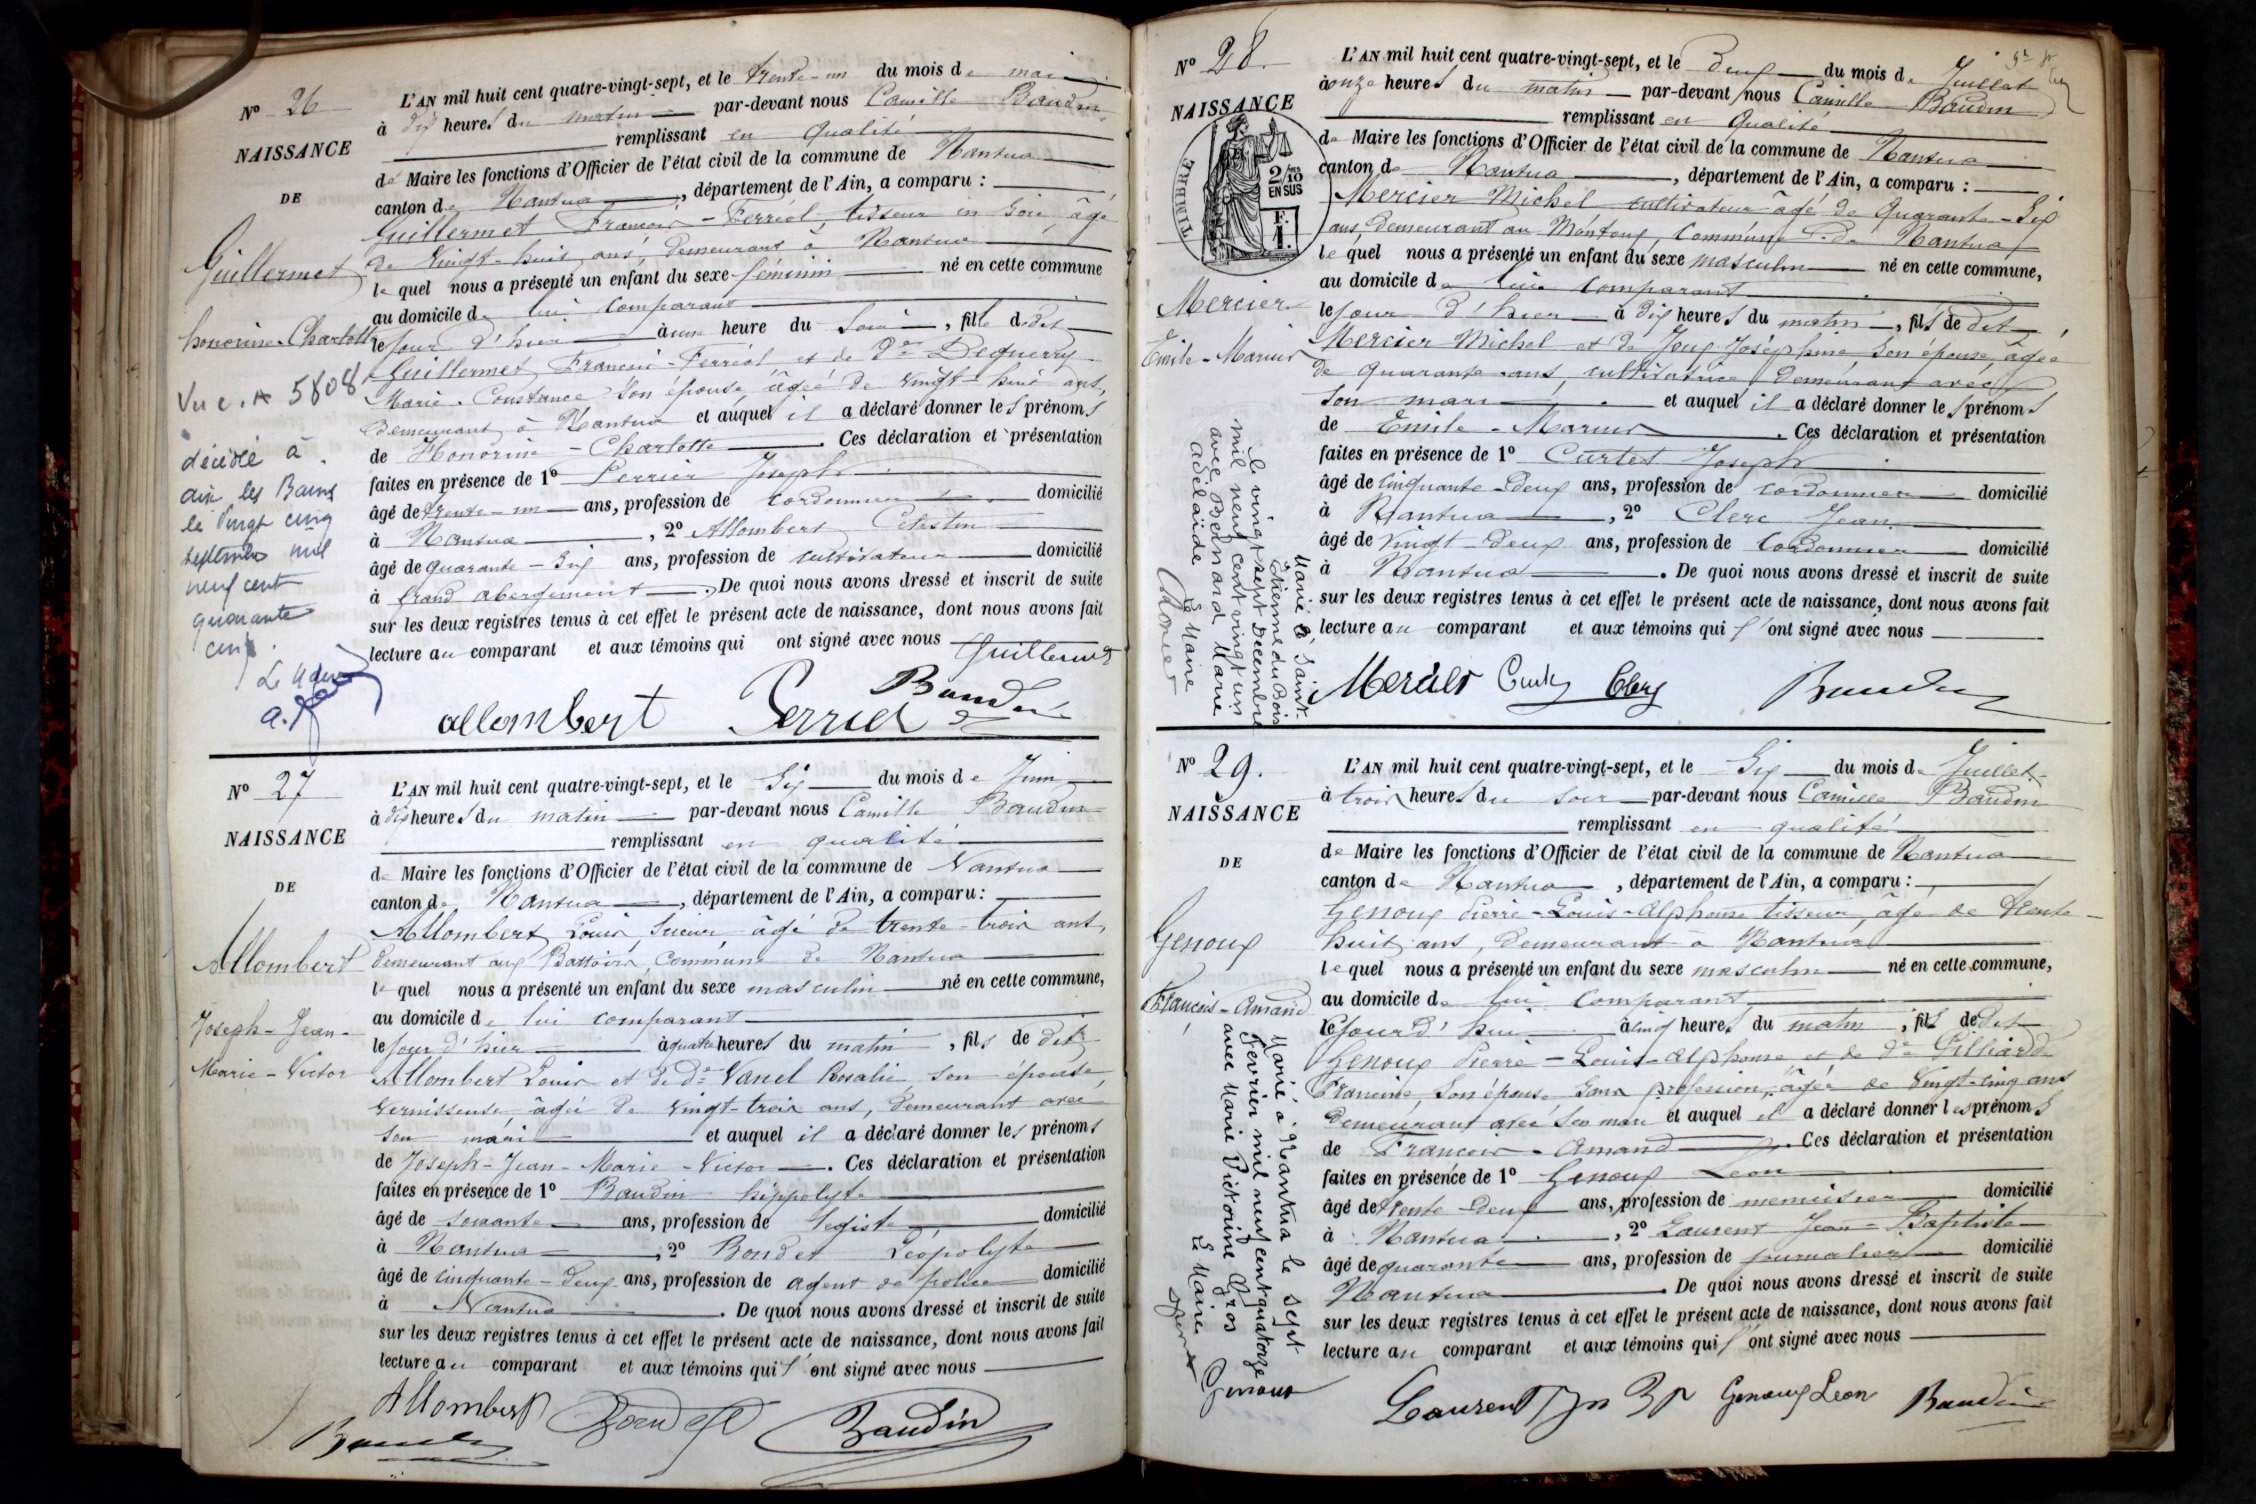 Nº 26
NAISSANCE
DE
Guillermet
honorine-Charlotte
Vu c. 5808
décédée à
aix les Bains
le vingt cinq
septembre mil
neuf cent
quarante
cinq.
Le Maire
L'AN mil huit cent quatre-vingt-sept, et le trente-un du mois de mai
à dix heures du matin par-devant nous Camille Baudin
remplissant en qualité
de Maire les fonctions d'Officier de l'état civil de la commune de Nantua
canton de Nantua, département de l'Ain, a comparu :
Guillermet François-Ferréol, tisseur en soie, âgé
de vingt-huit ans, demeurant à Nantua
lequel nous a présenté un enfant du sexe féminin né en cette commune
au domicile de lui comparant
le jour d'hier à une heure du soir, fille dudit
Guillermet François-Ferréol et de De Dequerry
Marie-Constance son épouse, âgée de vingt-huit ans,
demeurant à Nantua et auquel il a déclaré donner les prénoms
de Honorine-Charlotte. Ces déclaration et présentation
faites en présence de 1º Perrier Joseph
âgé de trente-un ans, profession de cordonnier domicilié
à Nantua, 2º Allombert Célestin
âgé de quarante-six ans, profession de cultivateur domicilié
à Grand abergement. De quoi nous avons dressé et inscrit de suite
sur les deux registres tenus à cet effet le présent acte de naissance, dont nous avons fait
lecture au comparant et aux témoins qui ont signé avec nous Guillermet
allombert Perrier Baudin
Nº 27
NAISSANCE
DE
Allombert
Joseph-Jean-
Marie-Victor
L'AN mil huit cent quatre-vingt-sept, et le Six du mois de Juin
à dix heures du matin par-devant nous Camille Baudin
remplissant en qualité
de Maire les fonctions d'Officier de l'état civil de la commune de Nantua
canton de Nantua, département de l'Ain, a comparu :
Allombert Louis, scieur âgé de trente-trois ans,
demeurant aux Battoirs, commune de Nantua
lequel nous a présenté un enfant du sexe masculin né en cette commune,
au domicile de lui comparant
le jour d'hier à quatre heures du matin, fils de dit
Allombert Louis et de De Vanel Rosalie, son épouse,
vernisseuse, âgée de vingt-trois ans, demeurant avec
son mari et auquel il a déclaré donner les prénoms
de Joseph-Jean-Marie-Victor. Ces déclaration et présentation
faites en présence de 1º Baudin hippolyte
âgé de soixante ans, profession de légiste domicilié
à Nantua, 2º Bondet Léopolyte
âgé de cinquante-deux ans, profession de agent de police domicilié
à Nantua. De quoi nous avons dressé et inscrit de suite
sur les deux registres tenus à cet effet le présent acte de naissance, dont nous avons fait
lecture au comparant et aux témoins qui ont signé avec nous
Allombert Bondet Baudin
Baudin
Nº 28.
NAISSANCE
TIMBRE
2/10 EN SUS
Mercier
Emile-Marius
Marié à Saint-
Etienne du Bois
le vingt sept décembre
mil neuf cent vingt un
avec Bernard Marie
Adélaïde
Le Maire
L'AN mil huit cent quatre-vingt-sept, et le Deux du mois de Juillet
à onze heures du matin par-devant nous Camille Baudin
remplissant en qualité
de Maire les fonctions d'Officier de l'état civil de la commune de Nantua
canton de Nantua, département de l'Ain, a comparu :
Mercier Michel cultivateur âgé de Quarante-Six
ans, demeurant au Montoux, commune de Nantua
lequel nous a présenté un enfant du sexe masculin né en cette commune,
au domicile de lui comparant
le jour d'hier à dix heures du matin, fils de dit
Mercier Michel et de Joux Joséphine son épouse, âgée
de quarante ans, cultivatrice demeurant avec
son mari et auquel il a déclaré donner les prénoms
de Emile-Marius. Ces déclaration et présentation
faites en présence de 1º Curtet Joseph
âgé de cinquante-deux ans, profession de cordonnier domicilié
à Nantua, 2º Clerc Jean
âgé de vingt-deux ans, profession de cordonnier domicilié
à Nantua. De quoi nous avons dressé et inscrit de suite
sur les deux registres tenus à cet effet le présent acte de naissance, dont nous avons fait
lecture au comparant et aux témoins qui ont signé avec nous
Mercier Baudin
Nº 29.
NAISSANCE
DE
Genoux
François-Amand
Marié à Nantua le sept
février mil neuf cent quatorze
avec Marie Victorine Gros
Le Maire
L'AN mil huit cent quatre-vingt-sept, et le Six du mois de Juillet
à trois heures du soir par-devant nous Camille Baudin
remplissant en qualité
de Maire les fonctions d'Officier de l'état civil de la commune de Nantua
canton de Nantua, département de l'Ain, a comparu :
Genoux Pierre-Louis-Alphonse tisseur, âgé de trente-
huit ans, demeurant à Nantua
lequel nous a présenté un enfant du sexe masculin né en cette commune,
au domicile de lui comparant
ce jour d'hui à cinq heures du matin, fils de dit
Genoux Pierre-Louis-Alphonse et de De Gilliard
Francine, son épouse sans profession, âgée de vingt-cinq ans
demeurant avec son mari et auquel il a déclaré donner les prénoms
de François-Amand. Ces déclaration et présentation
faites en présence de 1º Genoux Léon
âgé de trente-deux ans, profession de menuisier domicilié
à Nantua, 2º Laurent Jean-Baptiste
âgé de quarante ans, profession de journalier domicilié
Nantua. De quoi nous avons dressé et inscrit de suite
sur les deux registres tenus à cet effet le présent acte de naissance, dont nous avons fait
lecture au comparant et aux témoins qui ont signé avec nous
Genoux Laurent Genoux Leon Baudin